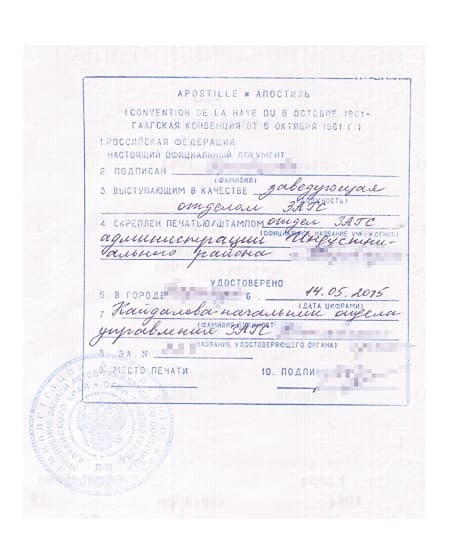 APOSTILLE и АПОСТИЛЬ
(CONVENTION DE LA HAYE DU 5 OCTOBRE 1961-
ГААГСКАЯ КОНВЕНЦИЯ ОТ 5 ОКТЯБРЯ 1961 Г.)
1.РОССИЙСКАЯ ФЕДЕРАЦИЯ
НАСТОЯЩИЙ ОФИЦИАЛЬНЫЙ ДОКУМЕНТ
2. ПОДПИСАН
(ФАМИЛИЯ)
3. ВЫСТУПАЮЩИМ В КАЧЕСТВЕ заведующая
отделом ЗАГС (ДОЛЖНОСТЬ)
4. СКРЕПЛЕН ПЕЧАТЬЮ/ШТАМПОМ отдел ЗАГС
(ОФИЦИАЛЬНОЕ НАЗВАНИЕ УЧРЕЖДЕНИЯ)
администрации Индустри-
ального района
УДОСТОВЕРЕНО
5. В ГОРОДЕ 6. 14.05.2015
(ДАТА ЦИФРАМИ)
7. начальник отдела
(ФАМИЛИЯ, ДОЛЖНОСТЬ)
управления ЗАГС
(НАЗВАНИЕ УДОСТОВЕРЯЮЩЕГО ОРГАНА)
8. ЗА N
9. МЕСТО ПЕЧАТИ 10. ПОДПИ
АЛТАЙСКОГО КРАЯ